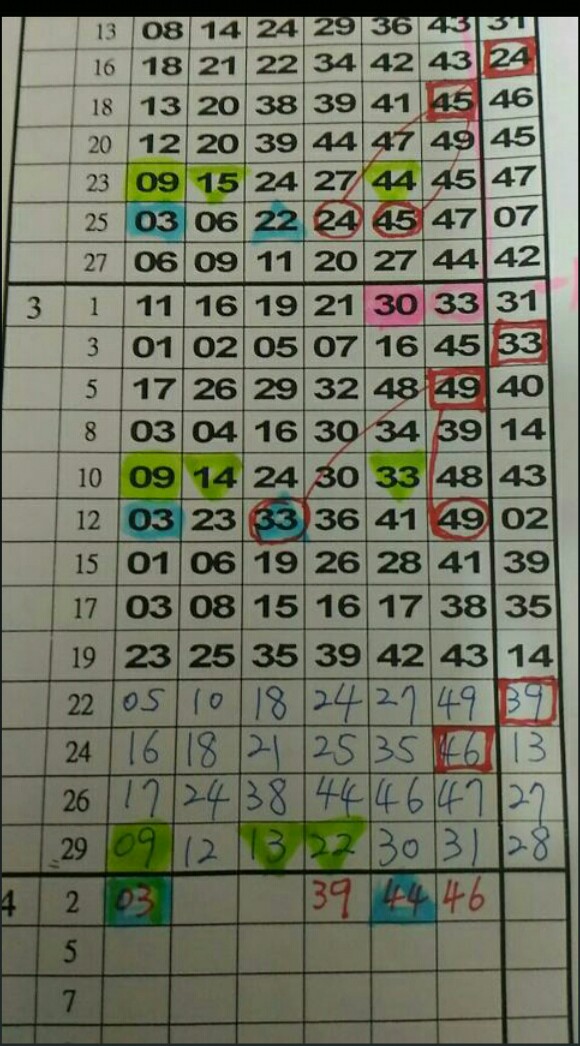 13 08 14 24 29 36 43 31
16 18 21 22 34 42 43 24
18 13 20 38 39 41 45 46
20 12 20 39 44 47 49 45
23 09 15 24 27 44 45 47
25 03 06 22 24 45 47 07
27 06 09 11 20 27 44 42
3 1 11 16 19 21 30 33 31
3 01 02 05 07 16 45 33
5 17 26 29 32 48 49 40
8 03 04 16 30 34 39 14
10 09 14 24 30 33 48 43
12 03 23 33 36 41 49 02
15 01 06 19 26 28 41 39
17 03 08 15 16 17 38 35
19 23 25 35 39 42 43 14
22 05 10 18 24 27 49 39
24 16 18 21 25 35 46 13
26 17 24 38 44 46 47 27
29 09 12 13 22 30 31 28
4 2 03 39 44 46
5
7